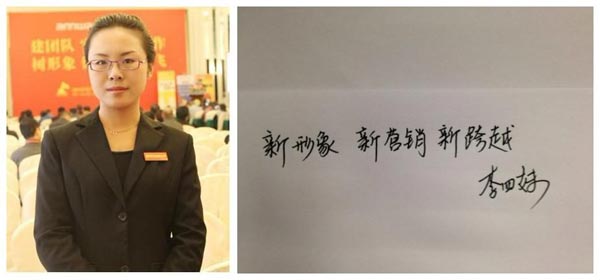 建团队
树形象
新形象 新营销 新跨越
李四妹